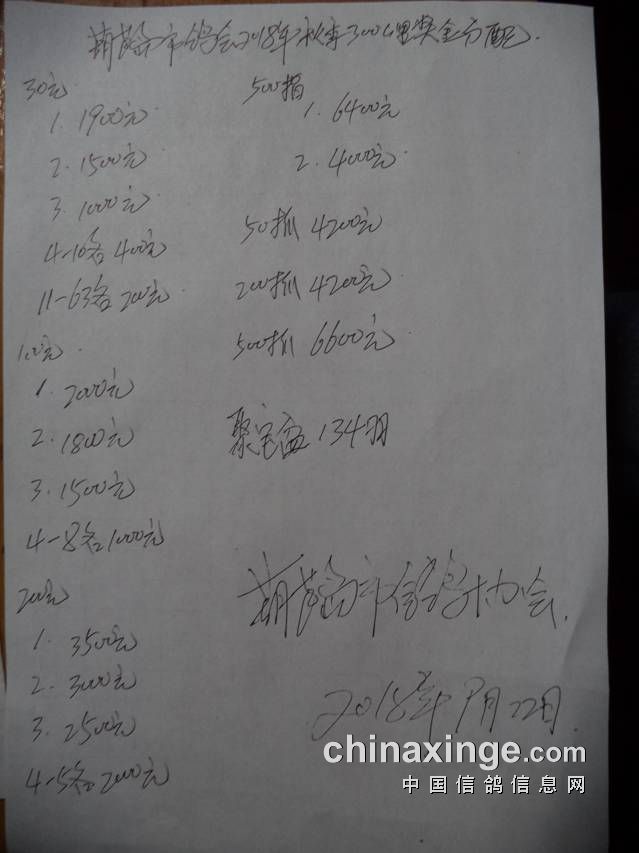 葫芦岛市鸽会2018年秋季300公里奖金分配.
30元
1. 1900元
2. 1500元
3. 1000元
4-10名 400元
11-63名 200元
100元
1. 2000元
2. 1800元
3. 1500元
4-8名 1000元
200元
1. 3500元
2. 3000元
3. 2500元
4-5名 2000元
500指
1. 6400元
2. 4000元
50抓 4200元
200抓 4200元
500抓 6600元
聚宝盆 134羽
葫芦岛市信鸽协会.
2018年9月22日.
chinaxinge.com
中国信鸽信息网